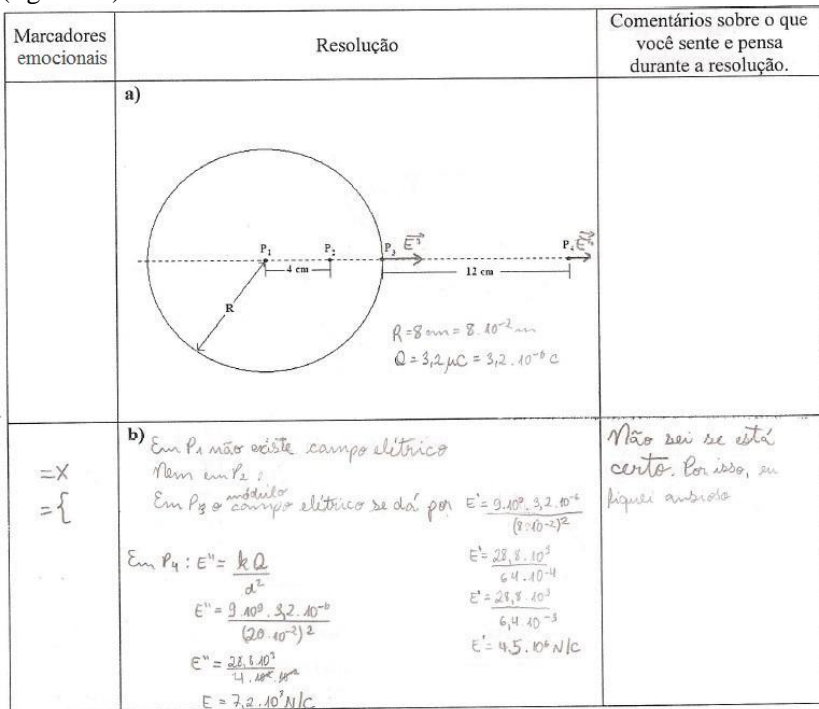 Marcadores emocionais
Resolução
Comentários sobre o que você sente e pensa durante a resolução.
a)
P₁
P₂
P₃
E'
P₄
4 cm
12 cm
R
R = 8 cm = 8 . 10⁻² m
Q = 3,2 μC = 3,2 . 10⁻⁶ C
=X
={
b) Em P₁ não existe campo elétrico
Nem em P₂ ;
Em P₃ o módulo campo elétrico se dá por E' = 9.10⁹ . 3,2 . 10⁻⁶ / (8.10⁻²)²
E' = 28,8 . 10³ / 64 . 10⁻⁴
E' = 28,8 . 10³ / 6,4 . 10⁻³
E' = 4,5 . 10⁶ N/C
Em P₄ : E" = k Q / d²
E" = 9.10⁹ . 3,2 . 10⁻⁶ / (20 . 10⁻²)²
E" = 28,8 . 10³ / 4 .
E = 7,2 . 10³ N/C
Não sei se está
certo. Por isso, eu
fiquei ansioso